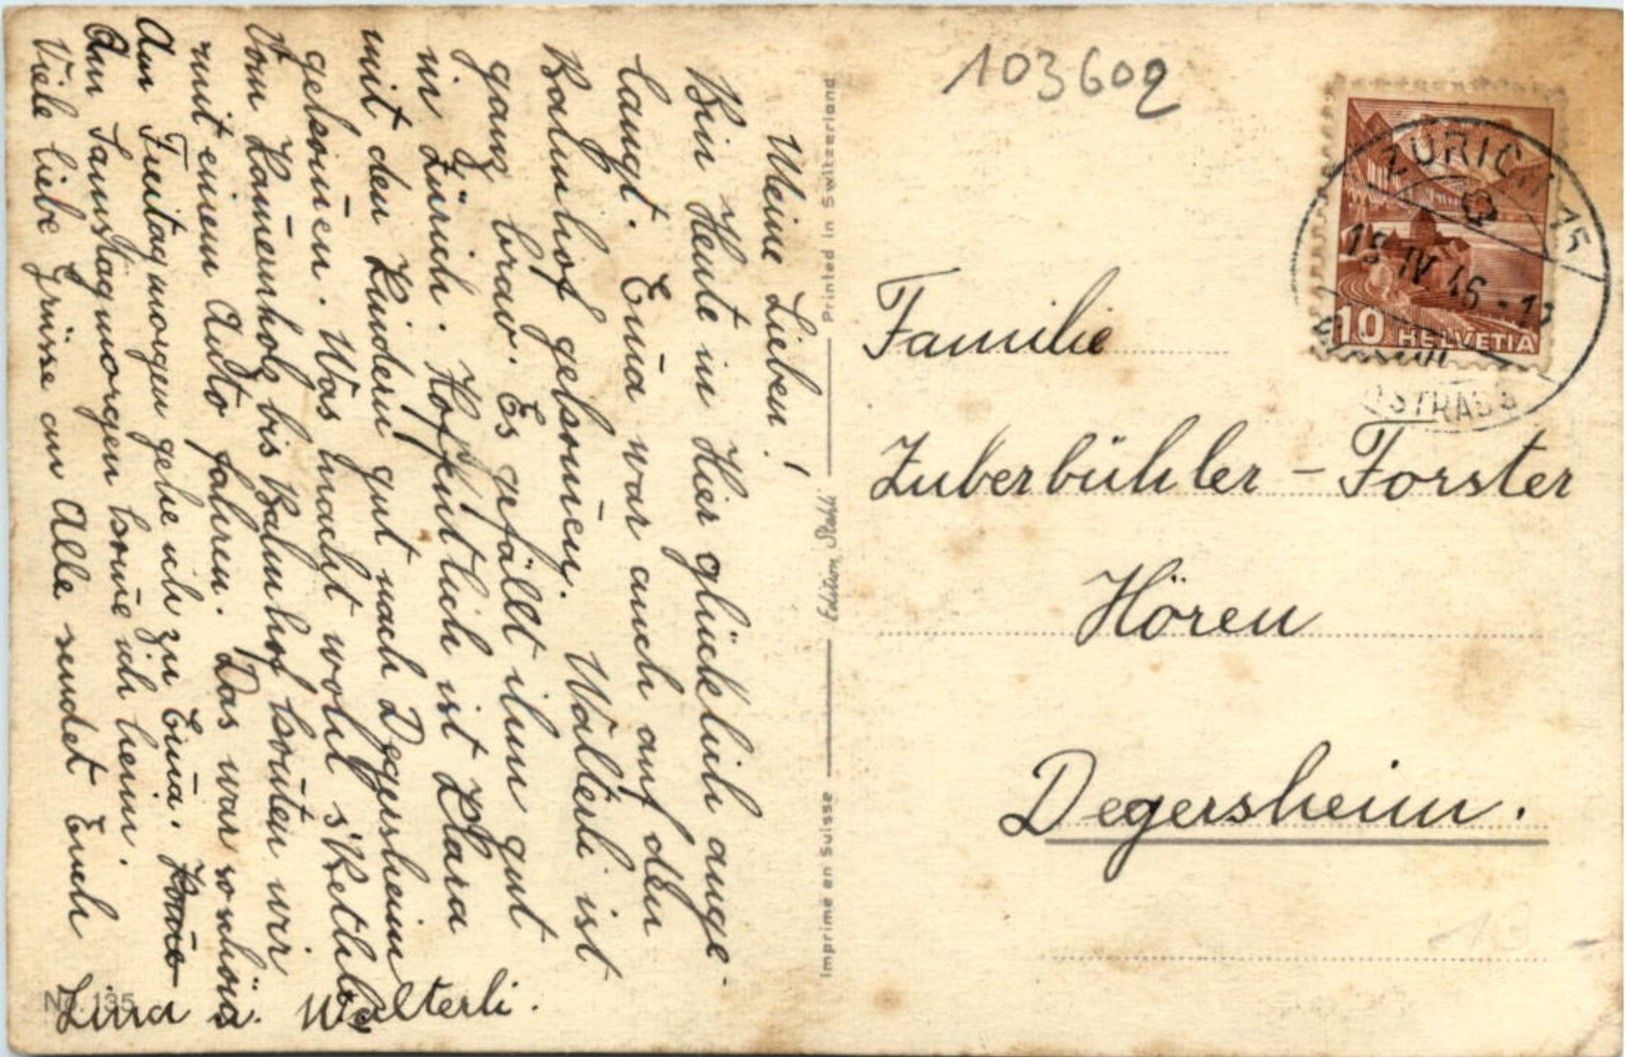 Meine Lieben!
Bin Heute in Hier glücklich ange-
langt. Em̄a war auch auf den
Bahnhof gekom̄en. Walterli ist
ganz brav. Es gefällt ihm gut
in Zürich. Hoffentlich ist Klara
mit den Kindern gut nach Degersheim
gekom̄en. Was macht wohl s'Bethli
Vom bis Bahnhof kon̄ten wir
mit einem Auto fahren. Das war so schön
Am Freitagmorgen gehe ich zu Em̄a. Kom̄e
Am Samstagmorgen kom̄e ich heim.
Viele liebe Grüsse an Alle sendet Euch
Lina u. Walterli.
No. 135
Imprimé en Suisse
Edition Stehli
Printed in Switzerland
103602
ZÜRICH 15
IV 46
10 HELVETIA
Familie
Zuberbühler-Forster
Hören
Degersheim.